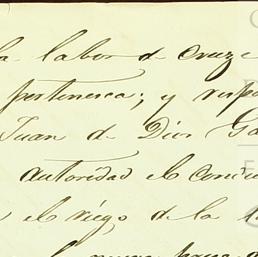 la labor de Cruz
pertenesca; y resp
Juan de Dios Ga
autoridad el condu
el riego de la